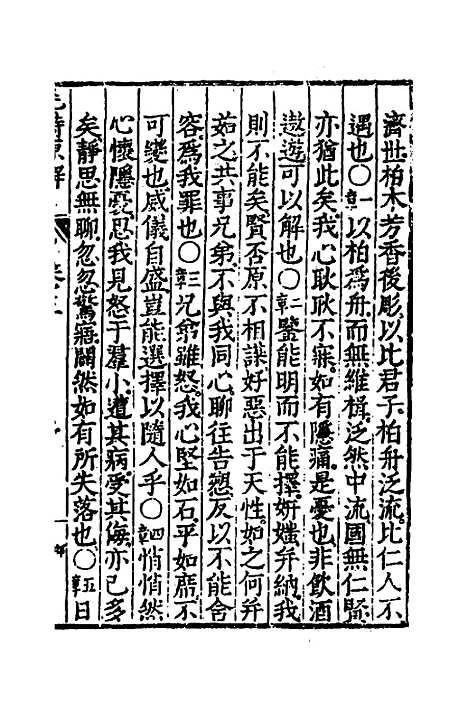 濟世柏木芳香後彫以比君子柏舟泛流比仁人不
遇也○一章以柏爲舟而無維楫泛然中流國無仁賢
亦猶此矣我心耿耿不寐如有隱痛是憂也非飲酒
遨遊可以解也○二章鑒能明而不能擇妍媸弁納我
則不能矣賢否原不相謀好惡出于天性如之何弁
茹之共事兄弟不與我同心聊往告愬反以不能舍
容爲我罪也○三章兄弟雖怒我心堅如石平如席不
可變也威儀自盛豈能選擇以隨人乎○四章悄悄然
心懷隱憂忍我見怒于羣小遭其病受其侮亦已多
矣靜思無聊忽忽驚寤闢然如有所失落也○五章日
毛詩原解